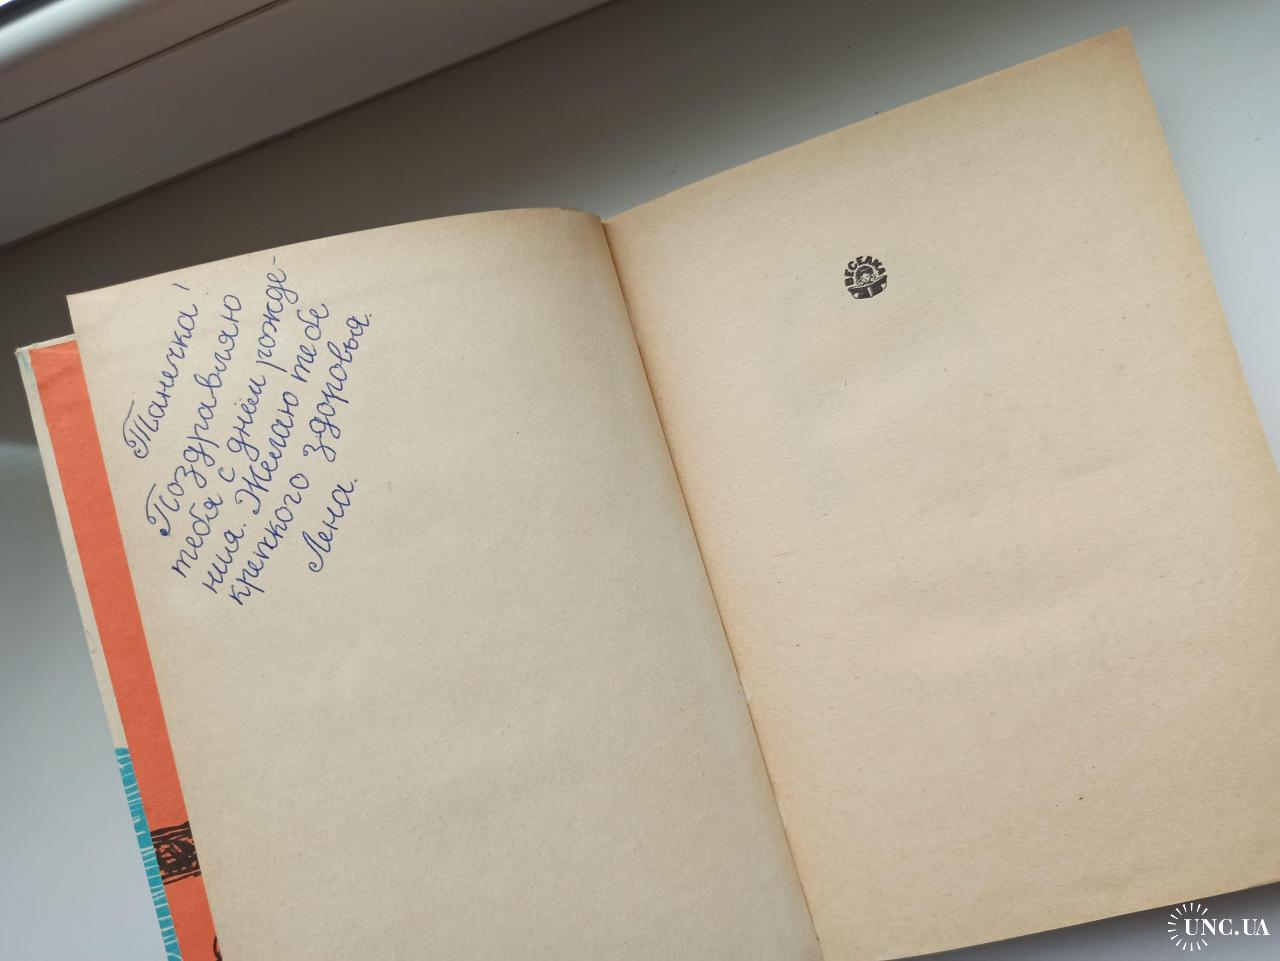 Танечка!
Поздравляю
тебя с днём рожде-
ния. Желаю тебе
крепкого здоровья.
Лена.
ВЕСЕЛКА
UNC.UA